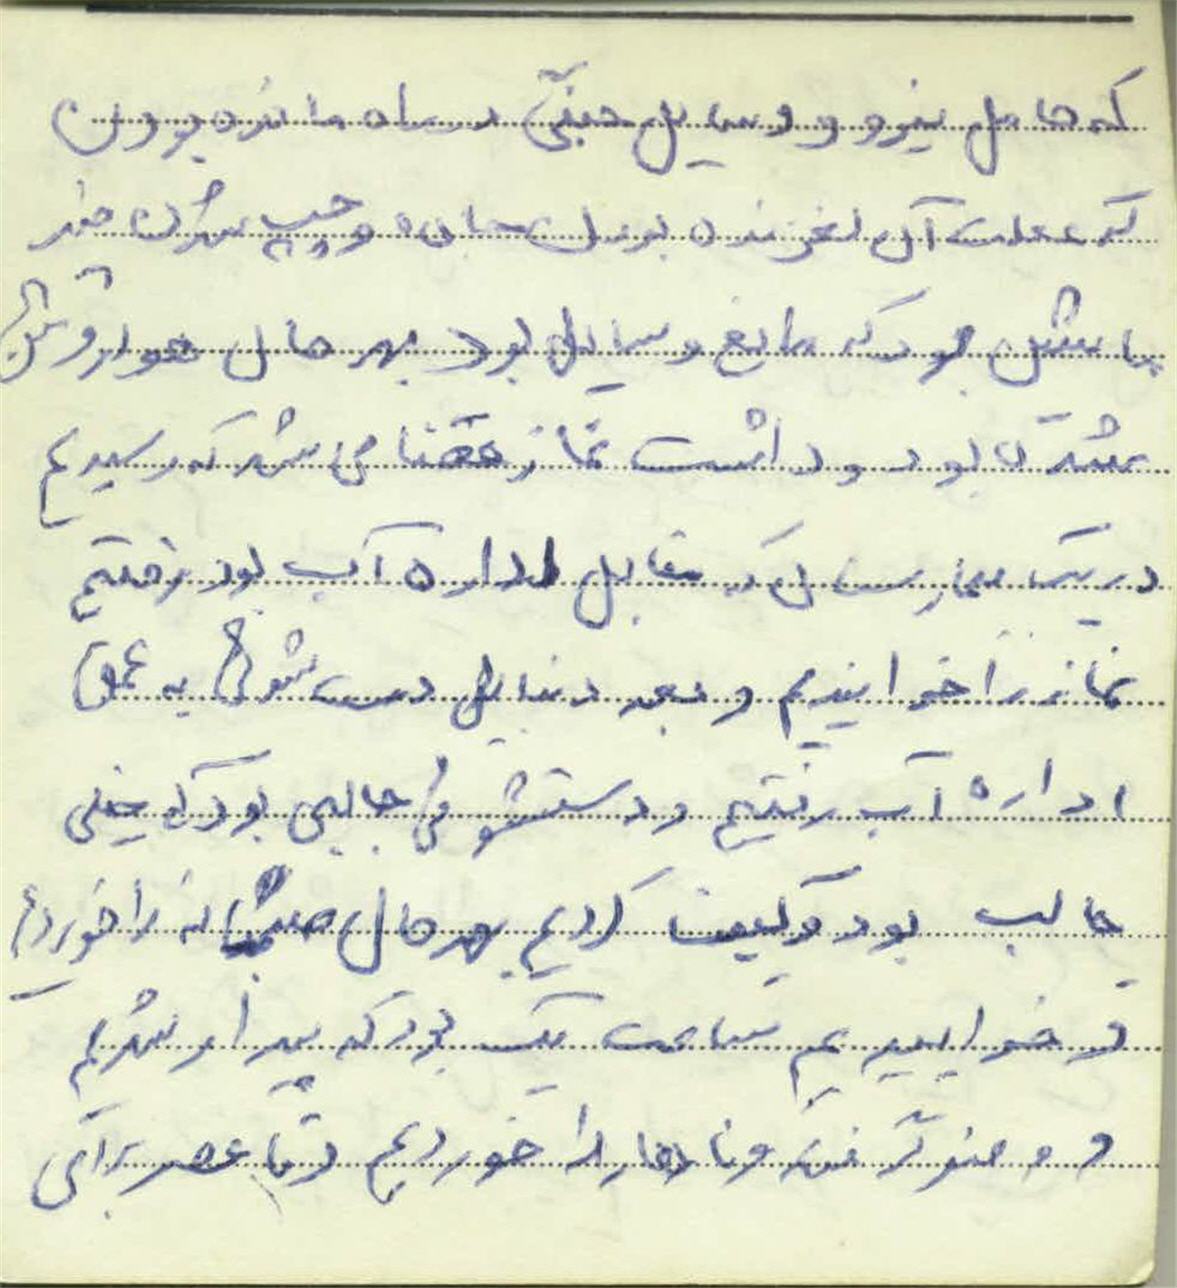 که حامل نیرو و وسایل جنگی در راه مانده بودن
که علت آن لغزنده بودن جاده و چپ شدن چند
ماشین بود که مانع وسایل بود بهر حال هوا روشن
شدن بود و داشت نماز قضا می شد که رسیدیم
در یک بیمارستانی که مقابل اداره آب بود رفتیم
نماز را خواندیم و بعد دنبال دست شوئی به عمق
اداره آب رفتیم و دستشوئی جالبی بود که خیلی
جالب بود و کیف کردیم بهر حال صبحانه را خوردیم
و خوابیدیم ساعت یک بود که بیدار شدیم
و وضو گرفته و ناهار را خوردیم و تا عصر برای